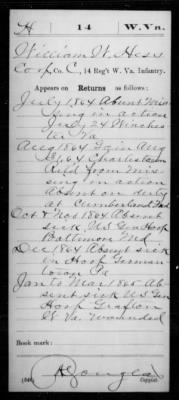 H | 14 | W. Va.
William W. Hess
Corp, Co. C, 14 Reg't W. Va. Infantry.
Appears on Returns as follows:
July 1864 Absent Miss
ing in action
July 24 Winches
ter Va
Aug 1864 Gain Aug
64 Charlestown
Retd from mis
sing in action
Absent on duty
at Cumberland Md
Oct & Nov 1864 Absent
sick US Gen Hosp
Baltimore Md
Dec 1864 Absent sick
in Hosp German
town Pa
Jan to Mar 1865 Ab
sent sick US Gen
Hosp Grafton
W Va wounded
Book mark:
(546)
Copyist.